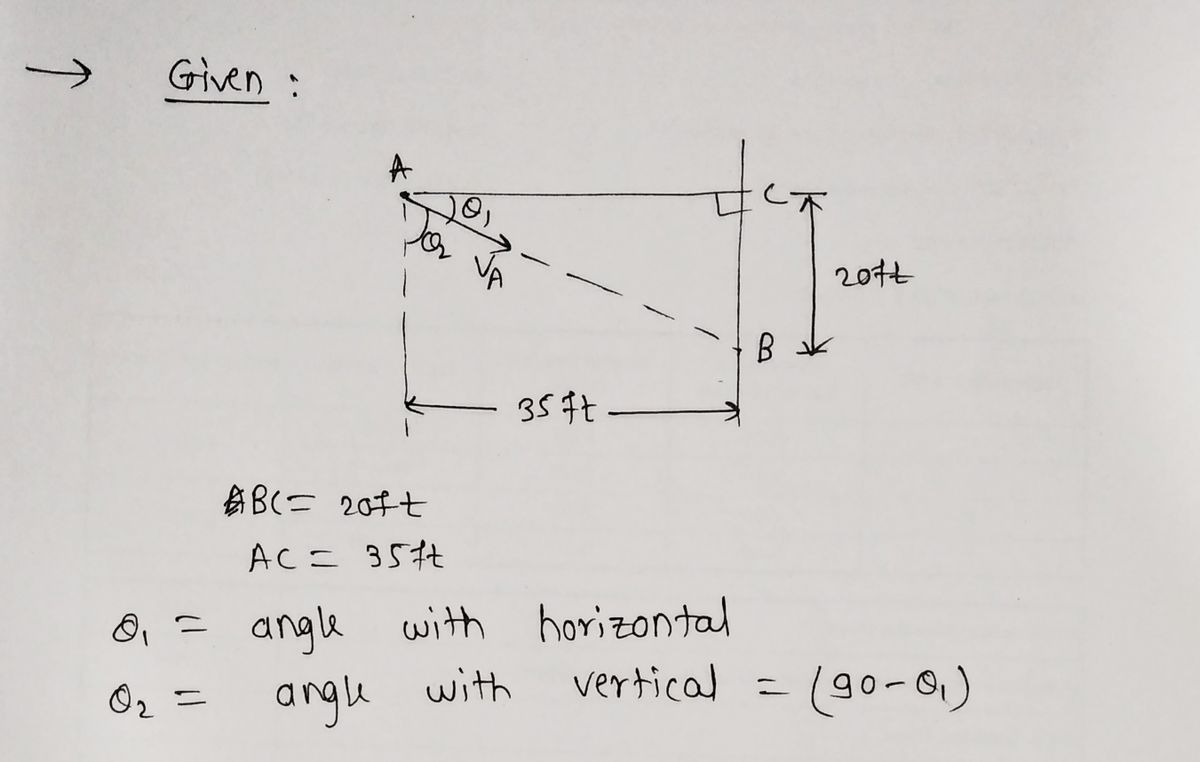 → Given :
A
C
θ₁
θ₂
V_A
20ft
B
35 ft
BC = 20ft
AC = 35ft
θ₁ = angle with horizontal
θ₂ = angle with vertical = (90-θ₁)